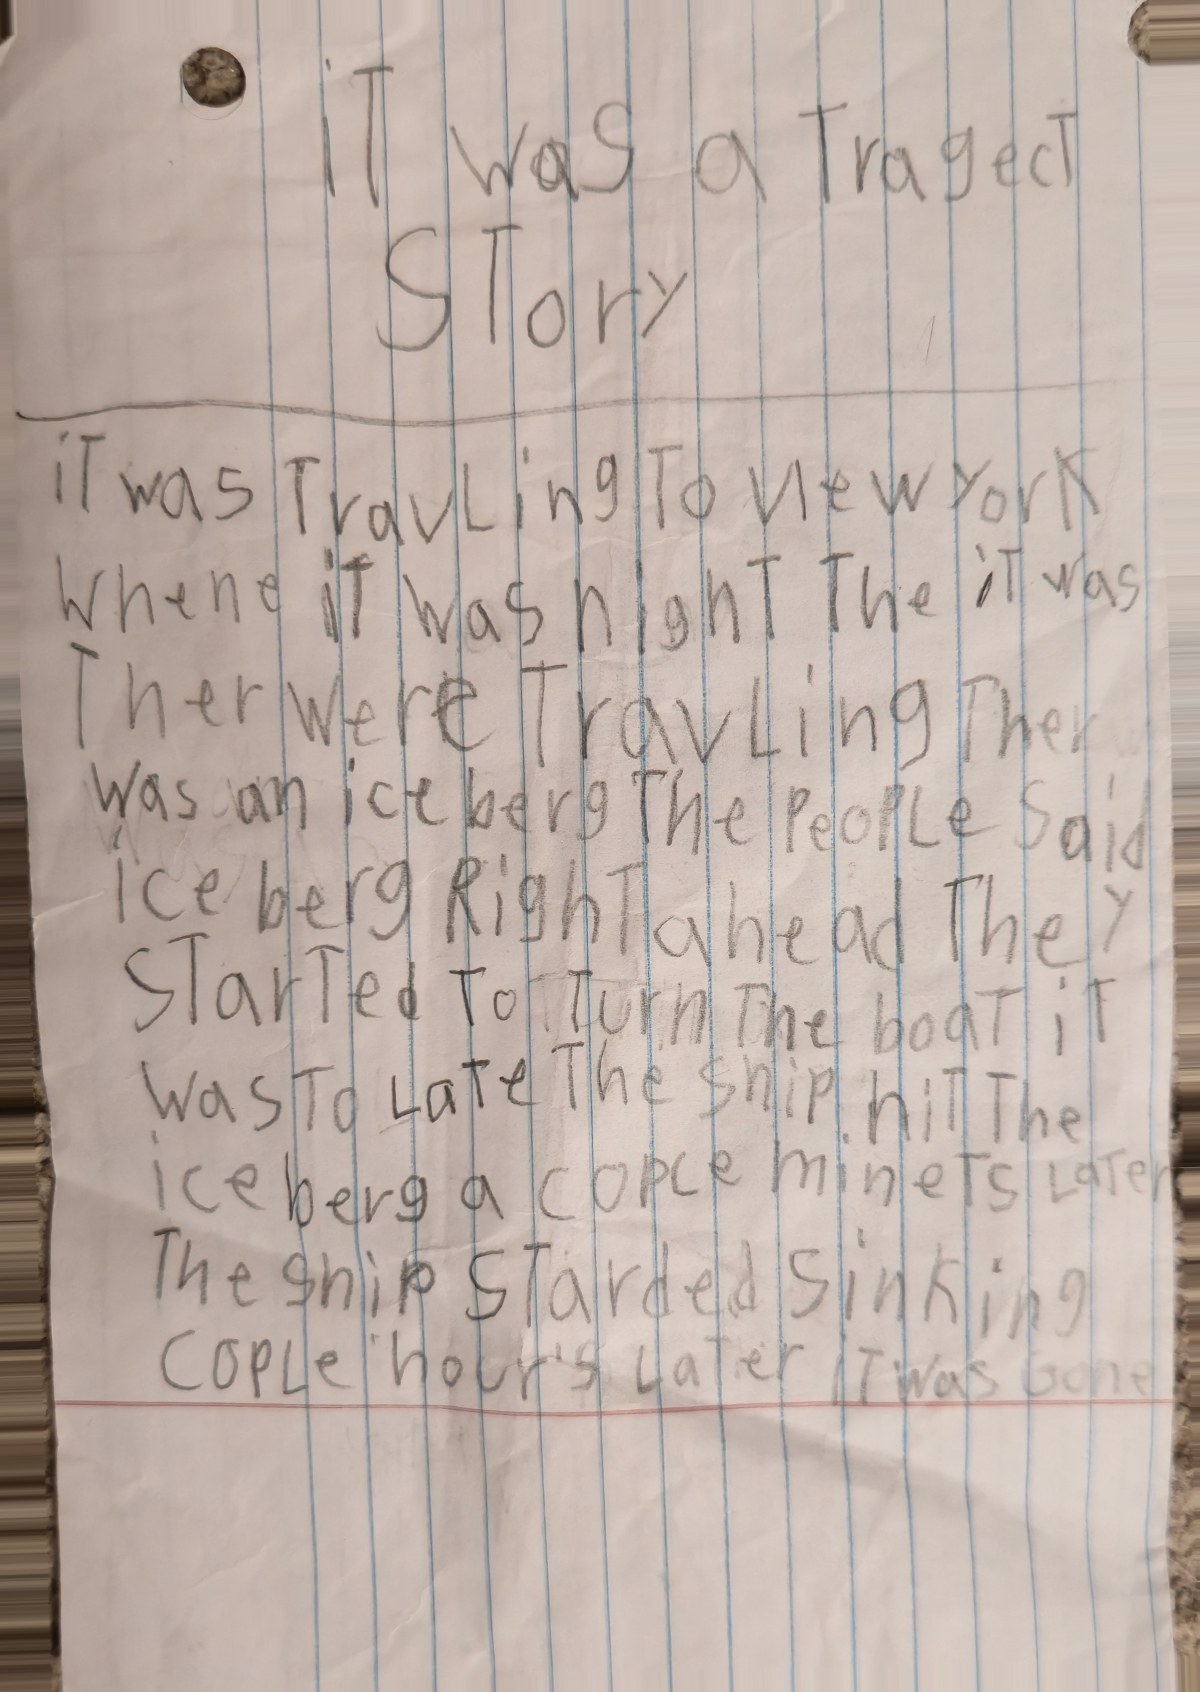 iT was a TragecT
STory
iT was TravLing To New York
Whene iT was nighT The iT was
Ther were TravLing Ther
was an ice berg The PeoPLe Said
ice berg RighT ahead They
STarTed To Turn The boaT iT
was To LaTe The ship hiT The
ice berg a coPLe mineTs LaTer
The ship STarded Sinking
COPLe hour's LaTer iT was Gone